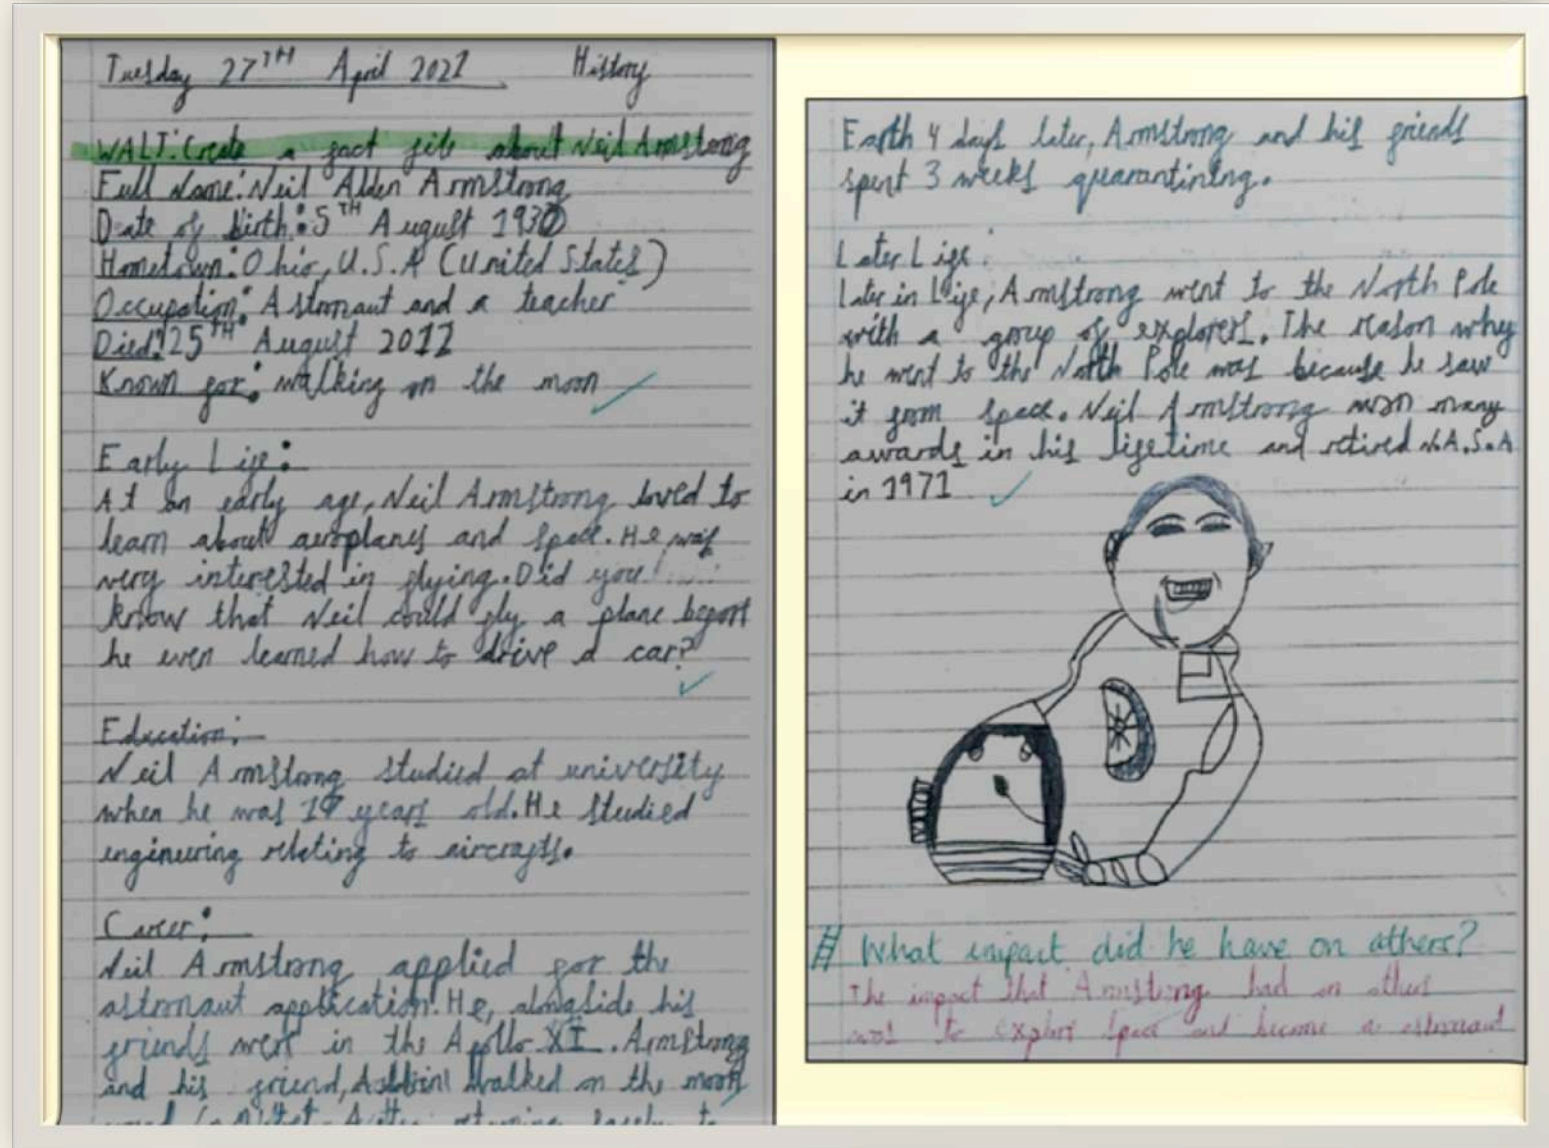 Tuesday 27TH April 2021 History
WALT: Create a fact file about Neil Armstrong
Full Name: Neil Alden Armstrong
Date of birth: 5TH August 1930
Hometown: Ohio, U.S.A (United States)
Occupation: Astronaut and a teacher
Died: 25TH August 2012
Known for: walking on the moon
Early Life:
At an early age, Neil Armstrong loved to
learn about aeroplanes and space. He was
very interested in flying. Did you
know that Neil could fly a plane before
he even learned how to drive a car?
Education:
Neil Armstrong studied at university
when he was 17 years old. He studied
engineering relating to aircrafts.
Career:
Neil Armstrong applied for the
astronaut application. He, alongside his
friends went in the Apollo XI. Armstrong
and his friend, Aldrin walked on the moon
After returning safely to
Earth 4 days later, Armstrong and his friends
spent 3 weeks quarantining.
Later Life:
Later in Life, Armstrong went to the North Pole
with a group of explorers. The reason why
he went to the North Pole was because he saw
it from space. Neil Armstrong won many
awards in his lifetime and retired N.A.S.A
in 1971
# What impact did he have on others?
The impact that Armstrong had on others
was to explore space and become a astronaut